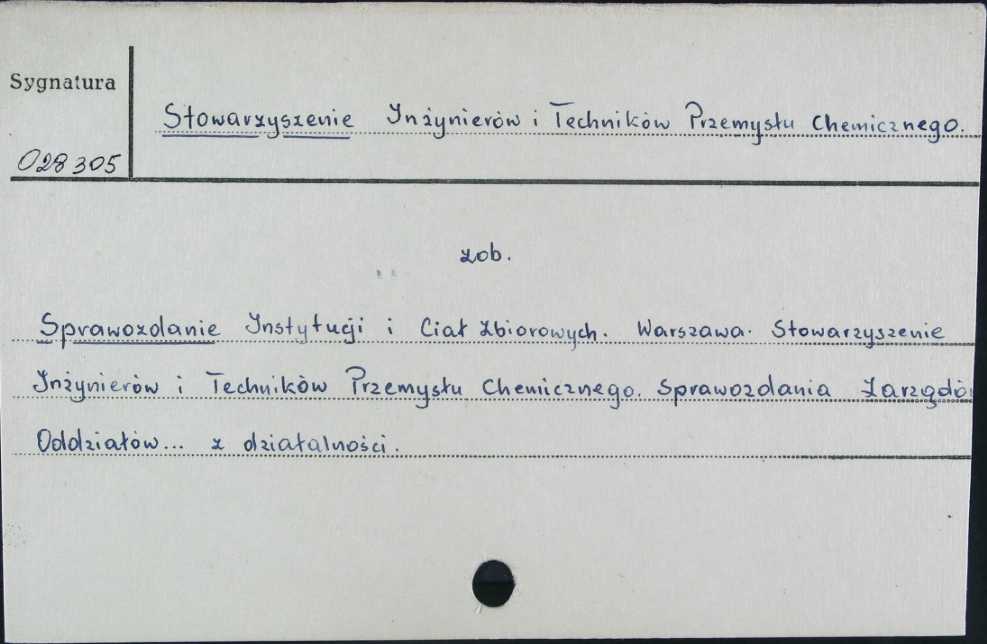 Sygnatura
Stowarzyszenie Inżynierów i Techników Przemysłu Chemicznego.
028305
zob.
Sprawozdanie Instytucji i Ciał Zbiorowych. Warszawa. Stowarzyszenie
Inżynierów i Techników Przemysłu Chemicznego. Sprawozdania Zarządów
Oddziałów... z działalności.